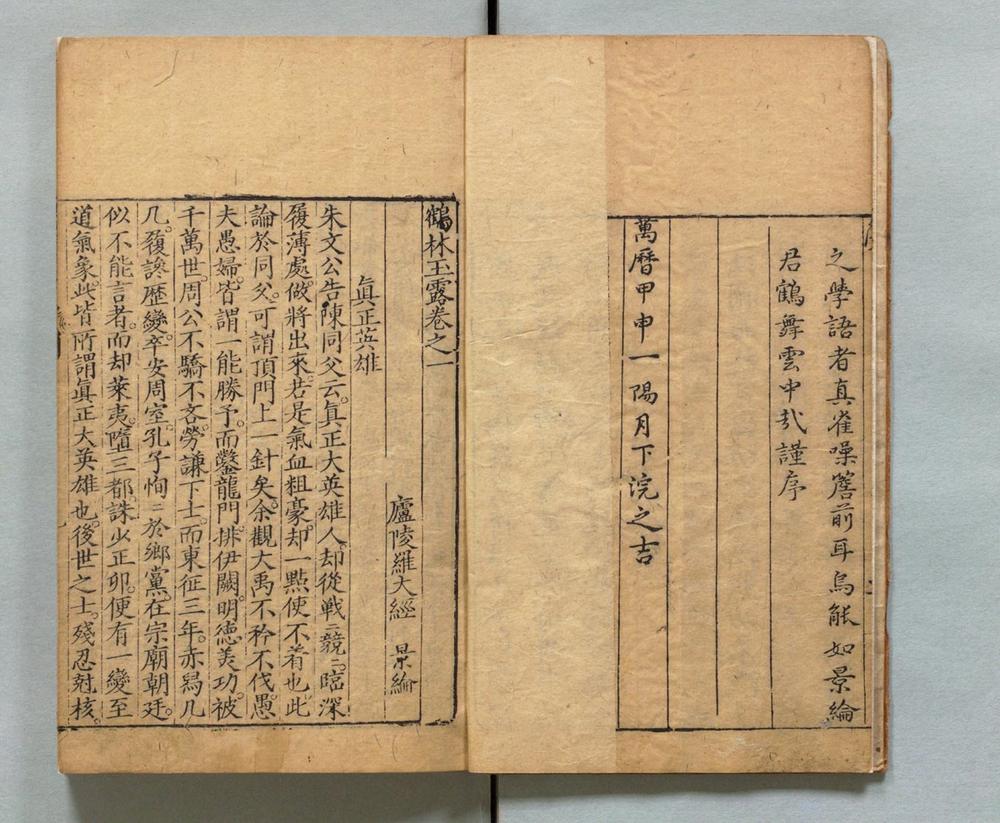 之學語者真雀噪簷前耳烏能如景綸
君鶴舞雲中㢤謹序
萬曆甲申一陽月下浣之吉
鶴林玉露卷之一
廬陵羅大經　景綸
眞正英雄
朱文公告陳同父云。眞正大英雄人。却從戰〻兢〻。臨深
履薄處。做將出來。若是氣血粗豪。却一點使不着也。此
論於同父。可謂頂門上一針矣。余觀大禹不矜不伐。愚
夫愚婦。皆謂一能勝予。而鑿龍門。排伊闕。明德美功。被
千萬世。周公不驕不吝。勞謙下士。而東征三年。赤舄几
几。履讒歷變。卒安周室。孔子恂〻於鄉黨。在宗廟朝廷。
似不能言者。而却萊夷。墮三都。誅少正卯。便有一變至
道氣象。此皆所謂眞正大英雄也。後世之士。殘忍尅核。